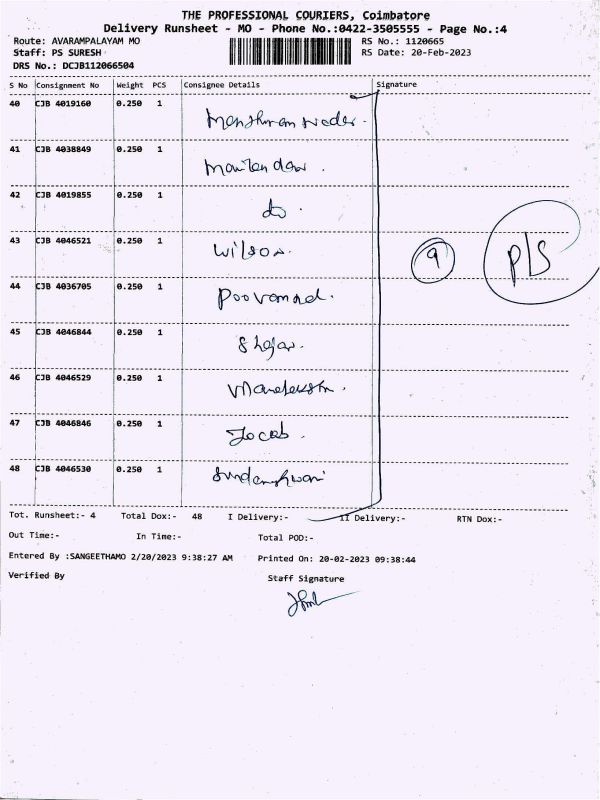 THE PROFESSIONAL COURIERS, Coimbatore
Delivery Runsheet - MO - Phone No.:0422-3505555 - Page No.:4
Route: AVARAMPALAYAM MO RS No.: 1120665
Staff: PS SURESH RS Date: 20-Feb-2023
DRS No.: DCJB112066504
S No Consignment No Weight PCS Consignee Details Signature
40 CJB 4019160 0.250 1
41 CJB 4038849 0.250 1
42 CJB 4019855 0.250 1 do
43 CJB 4046521 0.250 1 Wilson. 9 P/S
44 CJB 4036705 0.250 1
45 CJB 4046844 0.250 1
46 CJB 4046529 0.250 1
47 CJB 4046846 0.250 1 Jocab.
48 CJB 4046530 0.250 1
Tot. Runsheet:- 4 Total Dox:- 48 I Delivery:- II Delivery:- RTN Dox:-
Out Time:- In Time:- Total POD:-
Entered By :SANGEETHAMO 2/20/2023 9:38:27 AM Printed On: 20-02-2023 09:38:44
Verified By Staff Signature